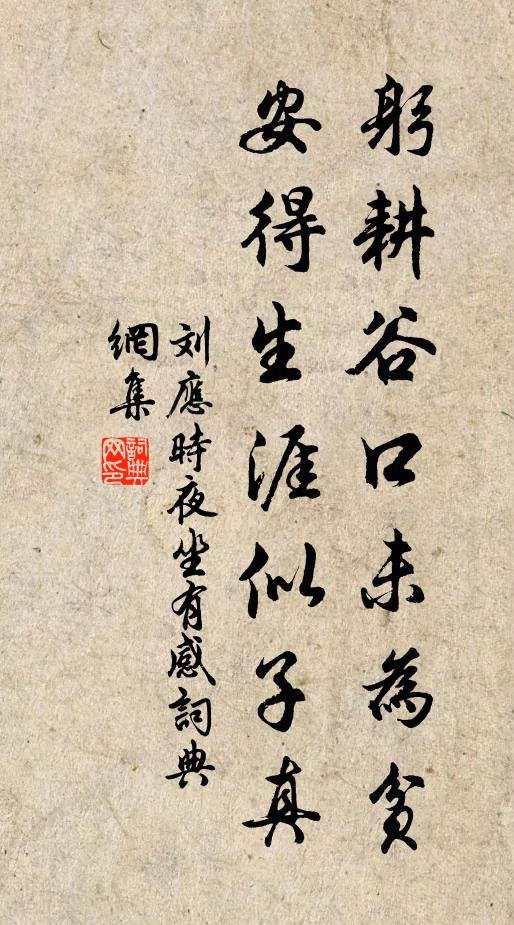 躬耕谷口未為貧
安得生涯似子真
刘應時夜坐有感詞典
網集
詞典
网印